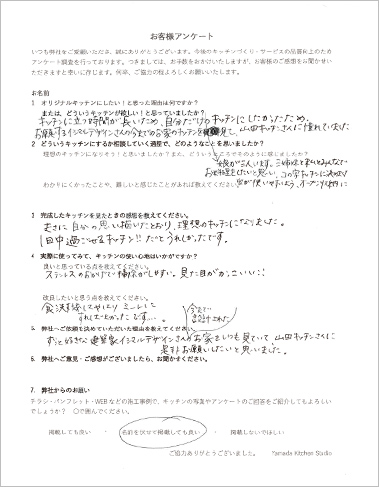 お客様アンケート
いつも弊社をご愛顧いただき、誠にありがとうございます。今後のキッチンづくり・サービスの品質向上のため
アンケート調査を行っております。つきましては、お手数をおかけいたしますが、お客様のご感想をお聞かせい
ただきますと幸いに存じます。何卒、ご協力の程よろしくお願いいたします。
お名前
1 オリジナルキッチンにしたい!と思った理由は何ですか?
または、どういうキッチンが欲しい!と思っていましたか?
キッチンに立つ時間が長いため、自分だけのキッチンにしたかったため。
お願するイシマルデザインさんの今までのお家のキッチンを見て、山田キッチンさんに憧れていました
2 どういうキッチンにするか相談していく過程で、どのようなことを思いましたか?
理想のキッチンになりそう!と思いましたか?また、どういうところでそのように感じましたか?
娘が三人います。三姉妹と
お料理をしたいと思い、コの字キッチンに
わかりにくかったことや、難しいと感じたことがあれば教えてください
3 完成したキッチンを見たときの感想を教えてください。
まさに自分の思い描いたとおり、理想のキッチンになりました。
1日中過ごせるキッチン!!だとうれしかったです。
4 実際に使ってみて、キッチンの使い心地はいかがですか?
良いと思っている点を教えてください。
ステンレスのおかげで掃除がしやすい。見た目がかっこいい!!
改良したいと思う点を教えてください。
食洗機
すればよかったです…。
5 弊社へご依頼を決めていただいた理由を教えてください。
ずっと好きな建築家イシマルデザインさんのお家をいつも見ていて、山田キッチンさんに
是非お願いしたいと思いました。
6 弊社へご意見・ご感想がございましたら、お聞かせください。
7. 弊社からのお願い
チラシ・パンフレット・WEBなどの施工事例で、キッチンの写真やアンケートのご回答をご紹介してもよろしい
でしょうか? ○で囲んでください。
掲載しても良い ・ 名前を伏せて掲載しても良い ・ 掲載しないでほしい
ご協力ありがとうございました。 Yamada Kitchen Studio